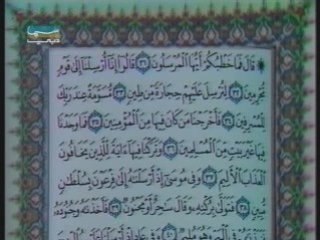 قَالَ فَمَا خَطْبُكُمْ أَيُّهَا الْمُرْسَلُونَ ٣١ قَالُوا إِنَّا أُرْسِلْنَا إِلَىٰ قَوْمٍ
مُجْرِمِينَ ٣٢ لِنُرْسِلَ عَلَيْهِمْ حِجَارَةً مِنْ طِينٍ ٣٣ مُسَوَّمَةً عِنْدَ رَبِّكَ
لِلْمُسْرِفِينَ ٣٤ فَأَخْرَجْنَا مَنْ كَانَ فِيهَا مِنَ الْمُؤْمِنِينَ ٣٥ فَمَا وَجَدْنَا
فِيهَا غَيْرَ بَيْتٍ مِنَ الْمُسْلِمِينَ ٣٦ وَتَرَكْنَا فِيهَا آيَةً لِلَّذِينَ يَخَافُونَ
الْعَذَابَ الْأَلِيمَ ٣٧ وَفِي مُوسَىٰ إِذْ أَرْسَلْنَاهُ إِلَىٰ فِرْعَوْنَ بِسُلْطَانٍ
مُبِينٍ ٣٨ فَتَوَلَّىٰ بِرُكْنِهِ وَقَالَ سَاحِرٌ أَوْ مَجْنُونٌ ٣٩ فَأَخَذْنَاهُ وَجُنُودَهُ